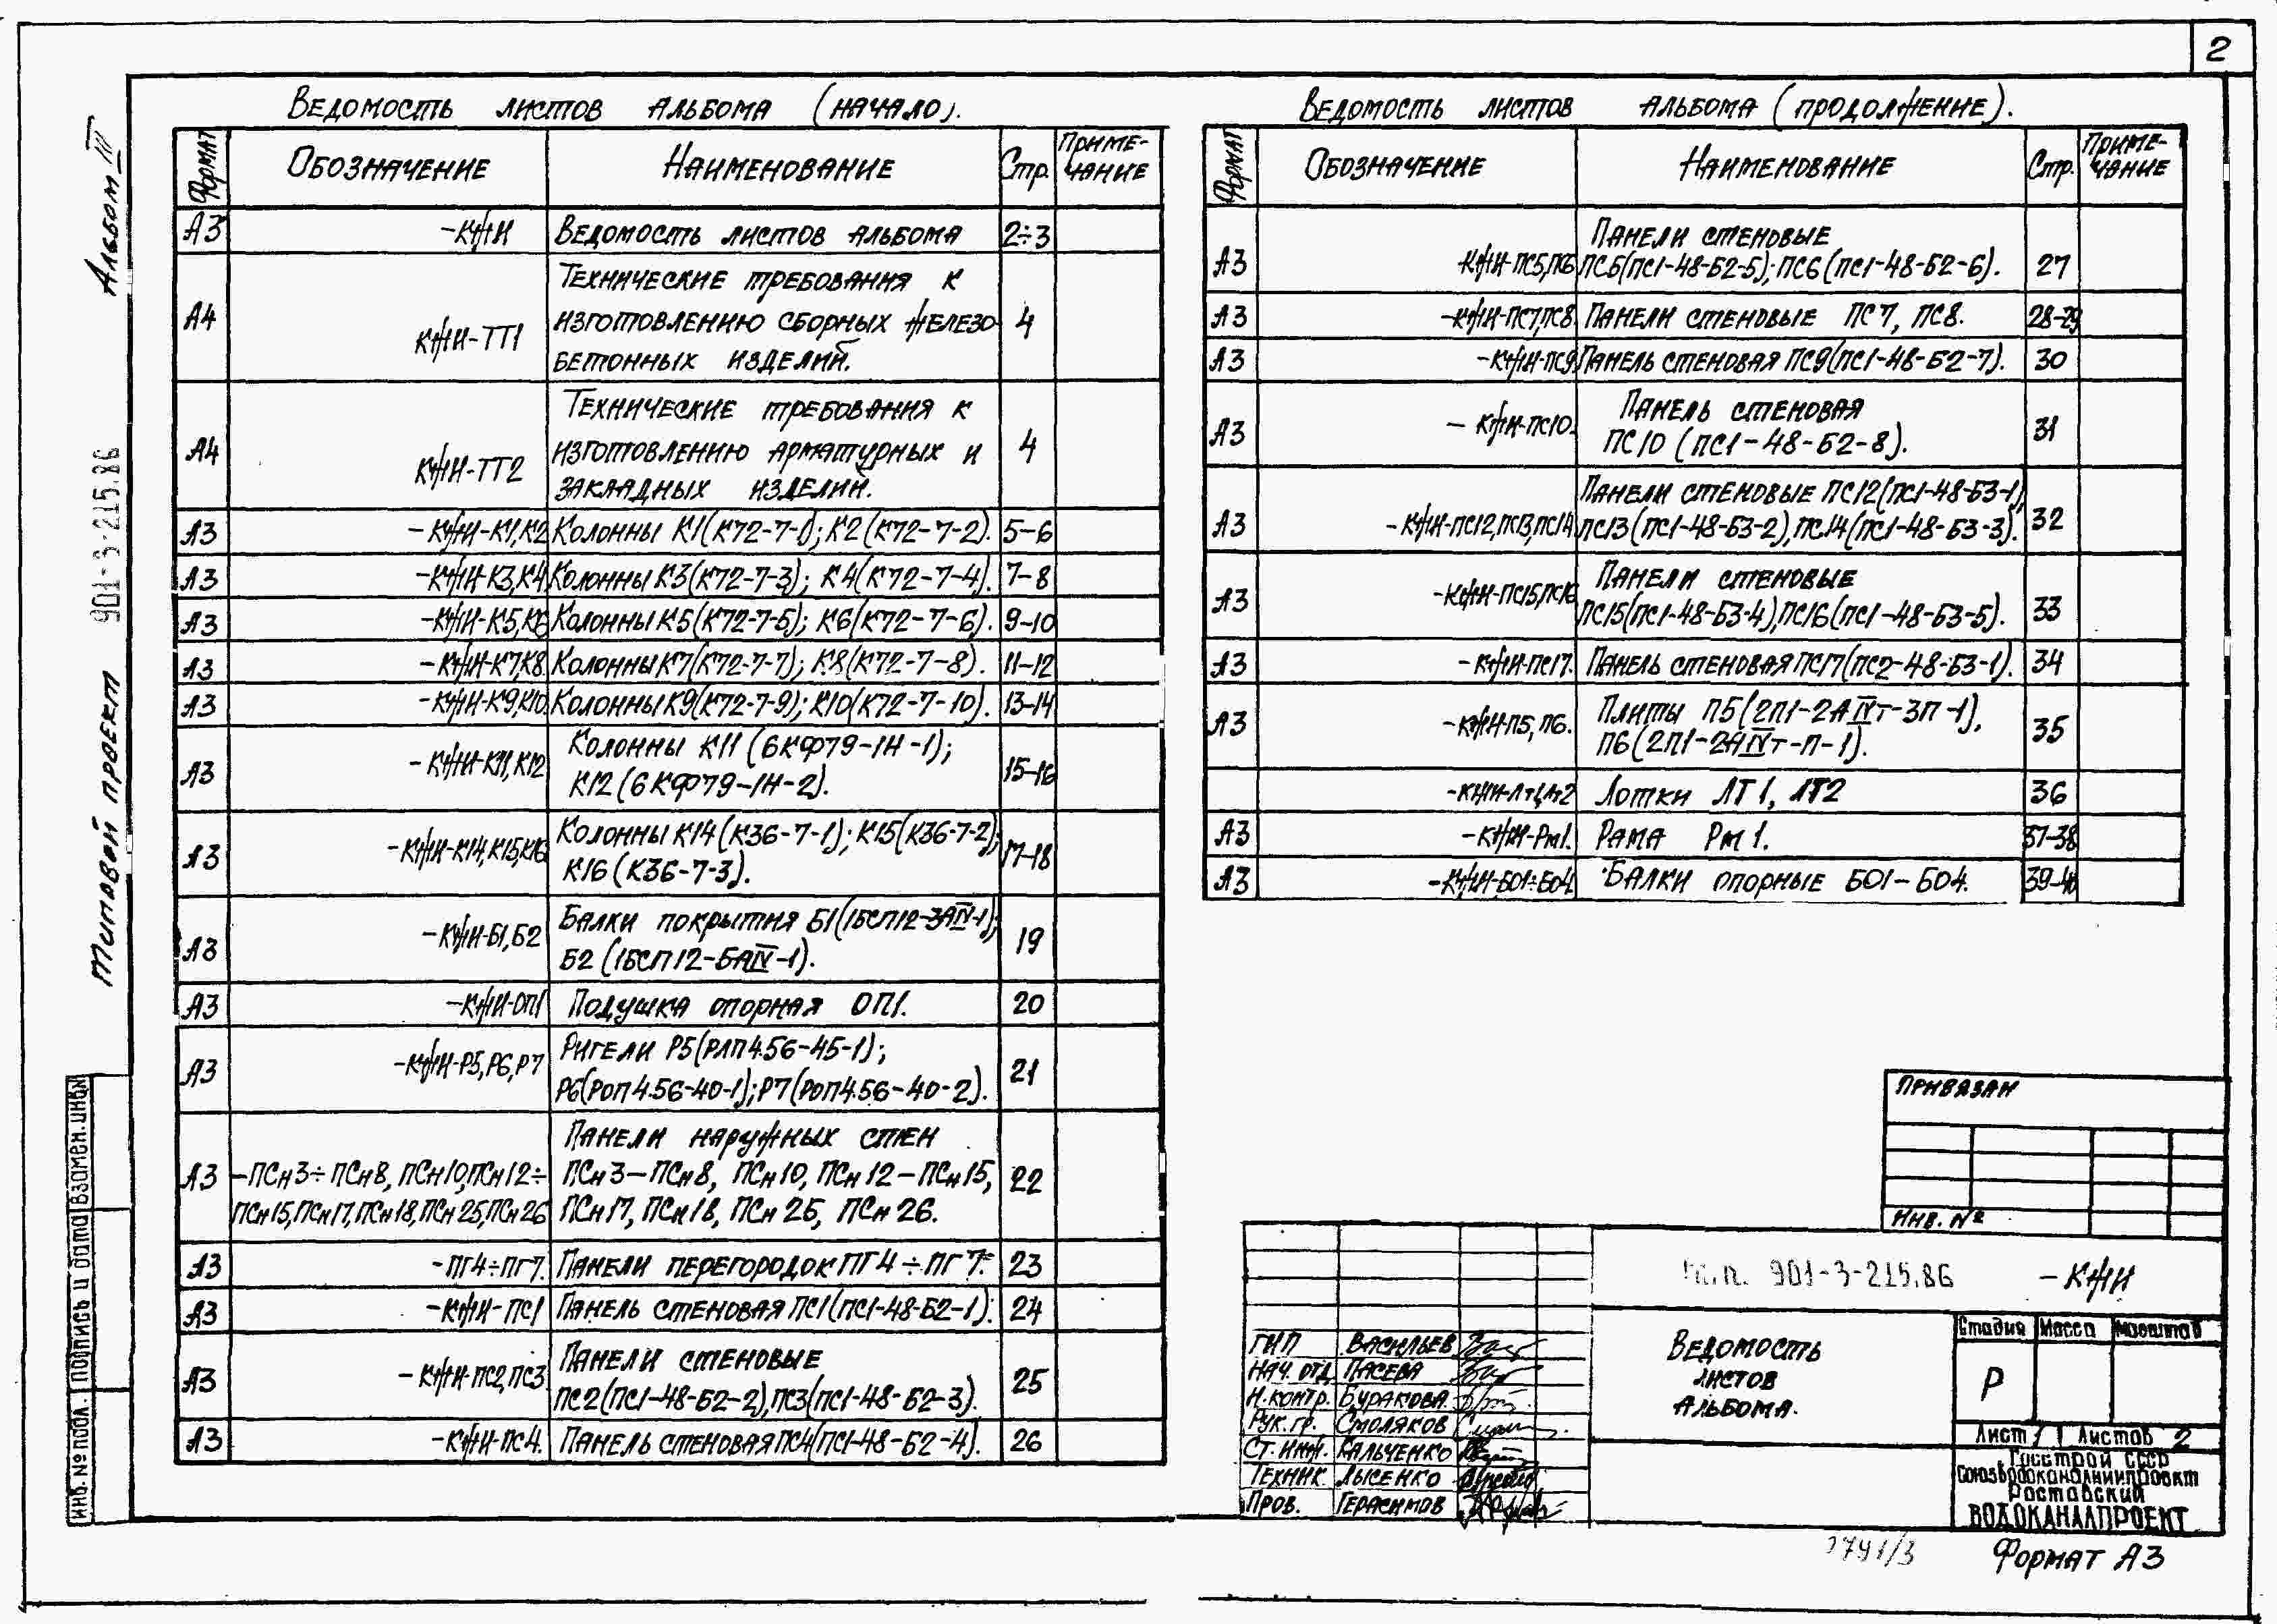 2
Альбом III
Типовой проект 901-3-215.86
Ведомость листов альбома (начало).
Формат Обозначение Наименование Стр. Примечание
А3 -КЖИ Ведомость листов альбома 2÷3
А4 КЖИ-ТТ1 Технические требования к
изготовлению сборных железо
бетонных изделий. 4
А4 КЖИ-ТТ2 Технические требования к
изготовлению арматурных и
закладных изделий. 4
А3 -КЖИ-К1,К2 Колонны К1(К72-7-1); К2(К72-7-2). 5-6
А3 -КЖИ-К3,К4 Колонны К3(К72-7-3); К4(К72-7-4). 7-8
А3 -КЖИ-К5,К6 Колонны К5(К72-7-5); К6(К72-7-6). 9-10
А3 -КЖИ-К7,К8 Колонны К7(К72-7-7); К8(К72-7-8). 11-12
А3 -КЖИ-К9,К10 Колонны К9(К72-7-9); К10(К72-7-10). 13-14
А3 -КЖИ-К11,К12 Колонны К11 (6КФ79-1Н-1);
К12 (6КФ79-1Н-2). 15-16
А3 -КЖИ-К14,К15,К16 Колонны К14(К36-7-1); К15(К36-7-2);
К16 (К36-7-3). 17-18
А3 -КЖИ-Б1,Б2 Балки покрытия Б1(1БСП12-3АIV-1);
Б2 (1БСП12-5АIV-1). 19
А3 -КЖИ-ОП1 Подушка опорная ОП1. 20
А3 -КЖИ-Р5,Р6,Р7 Ригели Р5(РЛП4.56-45-1);
Р6(РОП4.56-40-1); Р7(РОП4.56-40-2). 21
А3 -ПСн3÷ПСн8, ПСн10, ПСн12÷
ПСн15, ПСн17, ПСн18, ПСн25, ПСн26
Панели наружных стен
ПСн3-ПСн8, ПСн10, ПСн12-ПСн15,
ПСн17, ПСн18, ПСн25, ПСн26. 22
А3 -ПГ4÷ПГ7. Панели перегородок ПГ4÷ПГ7. 23
А3 -КЖИ-ПС1 Панель стеновая ПС1(ПС1-48-Б2-1). 24
А3 -КЖИ-ПС2,ПС3 Панели стеновые
ПС2(ПС1-48-Б2-2), ПС3(ПС1-48-Б2-3). 25
А3 -КЖИ-ПС4. Панель стеновая ПС4(ПС1-48-Б2-4). 26
Ведомость листов альбома (продолжение).
Формат Обозначение Наименование Стр. Примечание
А3 -КЖИ-ПС5,ПС6 Панели стеновые
ПС5(ПС1-48-Б2-5); ПС6(ПС1-48-Б2-6). 27
А3 -КЖИ-ПС7,ПС8. Панели стеновые ПС7, ПС8. 28-29
А3 -КЖИ-ПС9 Панель стеновая ПС9(ПС1-48-Б2-7). 30
А3 -КЖИ-ПС10. Панель стеновая
ПС10 (ПС1-48-Б2-8). 31
А3 -КЖИ-ПС12,ПС13,ПС14 Панели стеновые ПС12(ПС1-48-Б3-1),
ПС13(ПС1-48-Б3-2), ПС14(ПС1-48-Б3-3). 32
А3 -КЖИ-ПС15,ПС16 Панели стеновые
ПС15(ПС1-48-Б3-4), ПС16(ПС1-48-Б3-5). 33
А3 -КЖИ-ПС17. Панель стеновая ПС17(ПС2-48-Б3-1). 34
А3 -КЖИ-П5, П6. Плиты П5(2П1-2АIVт-3П-1),
П6(2П1-2АIVт-П-1). 35
-КЖИ-Лт1,Лт2 Лотки ЛТ1, ЛТ2 36
А3 -КЖИ-Рм1. Рама Рм1. 37-38
А3 -КЖИ-БО1÷БО4. Балки опорные БО1-БО4. 39-40
Привязан
Инв. №
т.п. 901-3-215.86 -КЖИ
ГИП Васильев
Нач. отд. Пасева
Н.контр. Буракова
Рук. гр. Смоляков
Ст. инж. Кальченко
Техник Лысенко
Пров. Герасимов
Ведомость
листов
альбома.
Стадия Масса Масштаб
Р
Лист 1 Листов 2
Госстрой СССР
Союзводоканалниипроект
Ростовский
ВОДОКАНАЛПРОЕКТ
Формат А3
Взамен.инв№
Подпись и дата
инв. № подл.